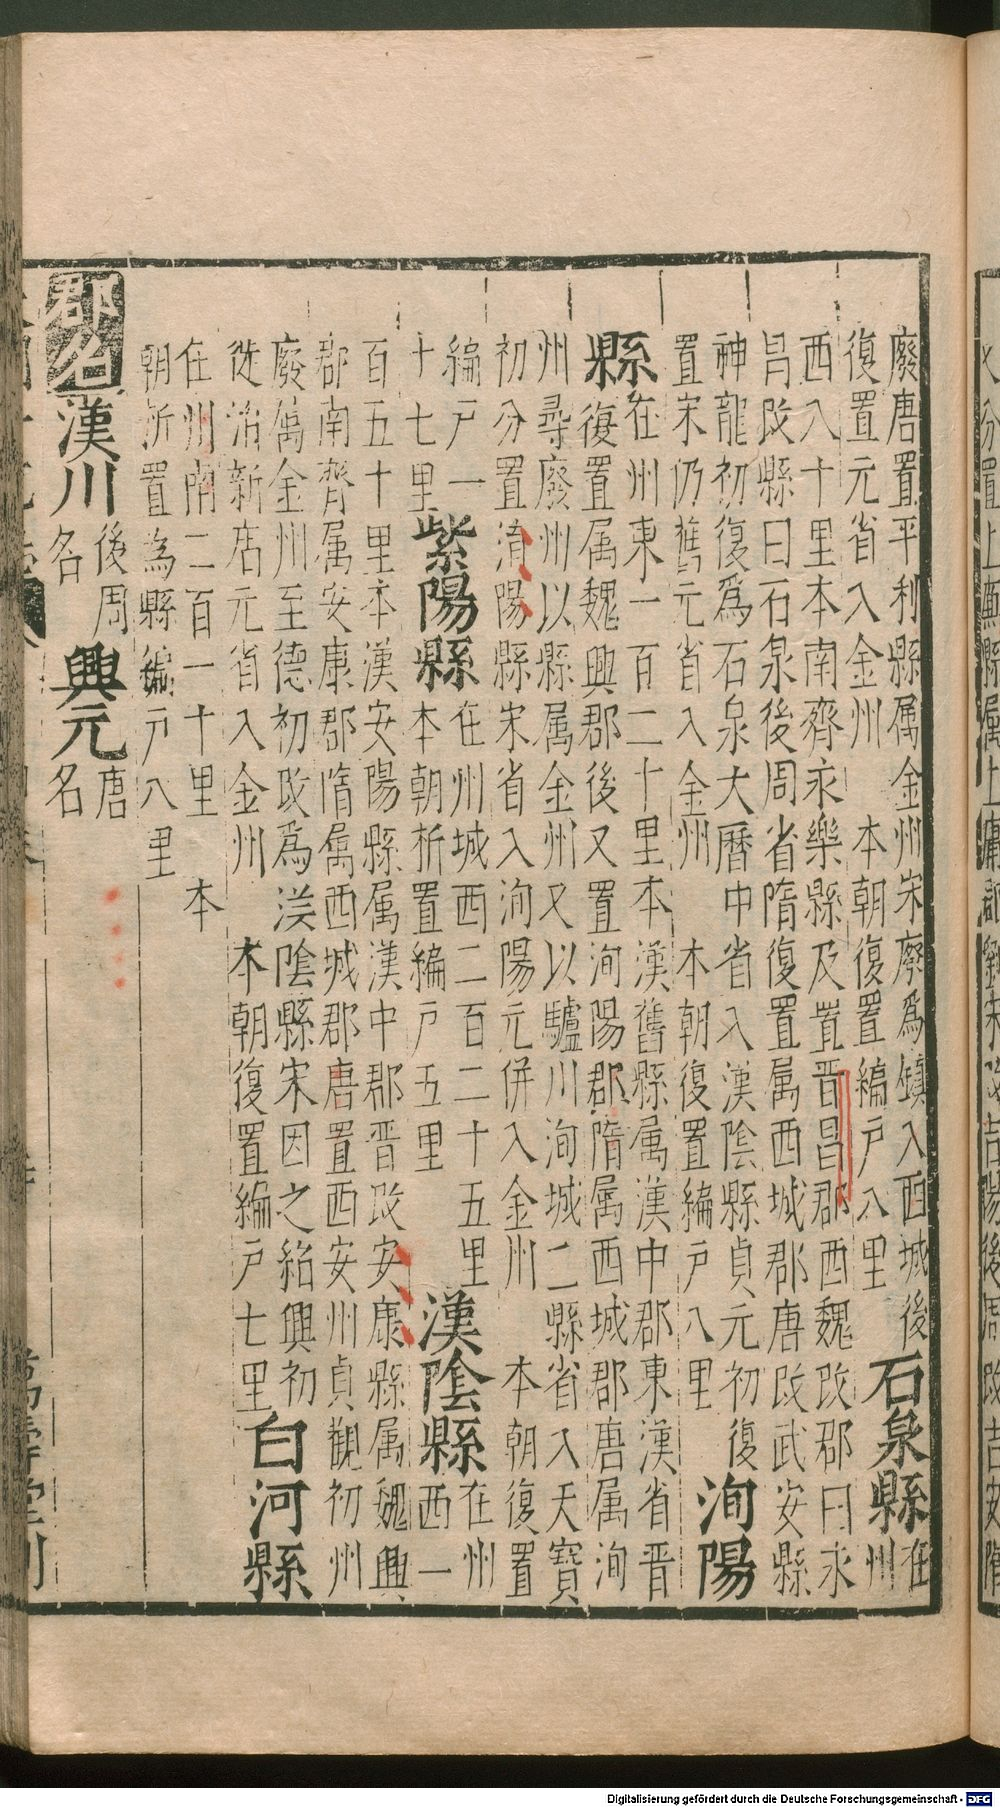 廢唐置平利縣属金州宋廢爲鎮入西城後
復置元省入金州 本朝復置編户八里
石泉縣
在
州
西八十里本南齊永樂縣及置晋昌郡西魏改郡曰永
昌改縣曰石泉後周省隋復置属西城郡唐改武安縣
神龍初復爲石泉大曆中省入漢陰縣貞元初復
置宋仍舊元省入金州 本朝復置編户八里
洵陽
縣
在州東一百二十里本漢舊縣属漢中郡東漢省晋
復置属魏興郡後又置洵陽郡隋属西城郡唐属洵
州尋廢州以縣属金州又以驢川洵城二縣省入天寶
初分置淯陽縣宋省入洵陽元併入金州 本朝復置
編户一
十七里
紫陽縣
在州城西二百二十五里
本朝析置編户五里
漢陰縣
在州
西一
百五十里本漢安陽縣属漢中郡晋改安康縣属魏興
郡南齊属安康郡隋属西城郡唐置西安州貞觀初州
廢属金州至德初改爲漢陰縣宋因之紹興初
徙治新店元省入金州 本朝復置編户七里
白河縣
在州南二百一十里 本
朝析置為縣編户八里
郡名
漢川
後周
名
興元
唐
名
萬壽堂刊
Digitalisierung gefördert durch die Deutsche Forschungsgemeinschaft - DFG